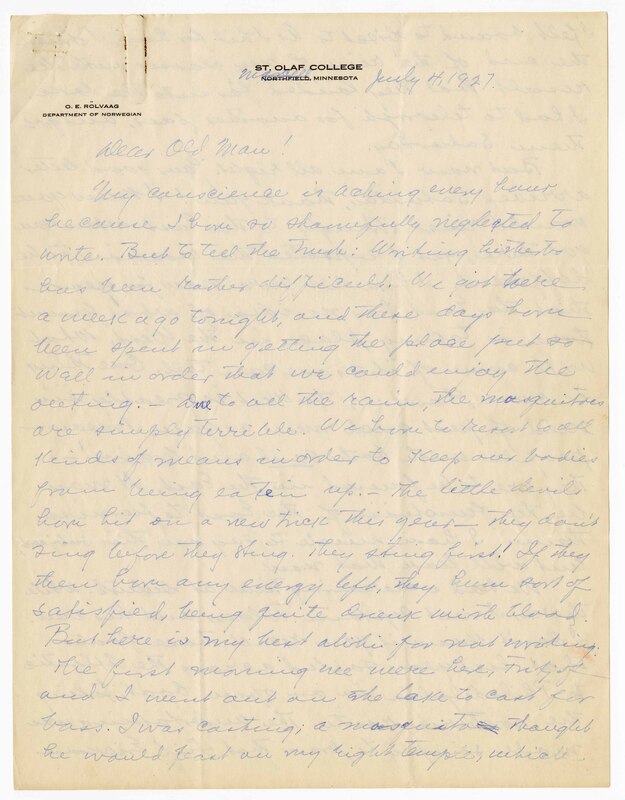 ST. OLAF COLLEGE
NORTHFIELD, MINNESOTA
July 4, 1927.
O. E. RÖLVAAG
DEPARTMENT OF NORWEGIAN
Dear Old Man!
My conscience is aching every hour
because I have so shamefully neglected to
write. But to tell the truth: Writing hitherto
has been rather difficult. We got here
a week ago tonight, and these days have
been spent in getting the place put so
well in order that we could enjoy the
outing. – Due to all the rain, the mosquitoes
are simply terrible. We have to resort to all
kinds of means in order to keep our bodies
from being eaten up. – The little devils
have hit on a new trick this year – they don't
sing before they sting. They sting first! If they
then have any energy left, they hum sort of
satisfied, being quite drunk with blood.
But here is my best alibi for not writing.
The first morning we were here,
and I went out on the lake to cast for
bass. I was casting; a mosquito thought
he would feast on my right temple, which